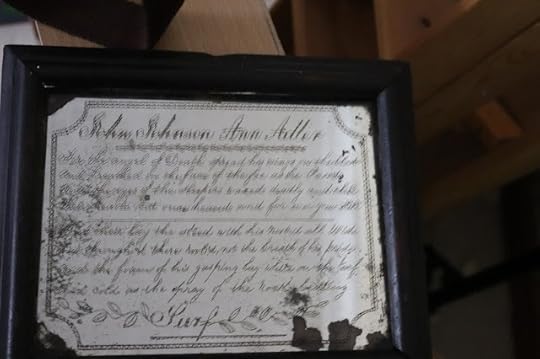 John Johnson Ann Adler
For the angel of Death spread his wings on the blast
And breathed in the face of the foe as he
And the eyes of the sleepers waxed deadly and chill
their hearts but once heaved and for ever grew still
And there lay the steed with his nostril all wide
But through it there rolled not the breath of his pride
And the foam of his gasping lay white on the turf
And cold as the spray of the rock beating
Surf